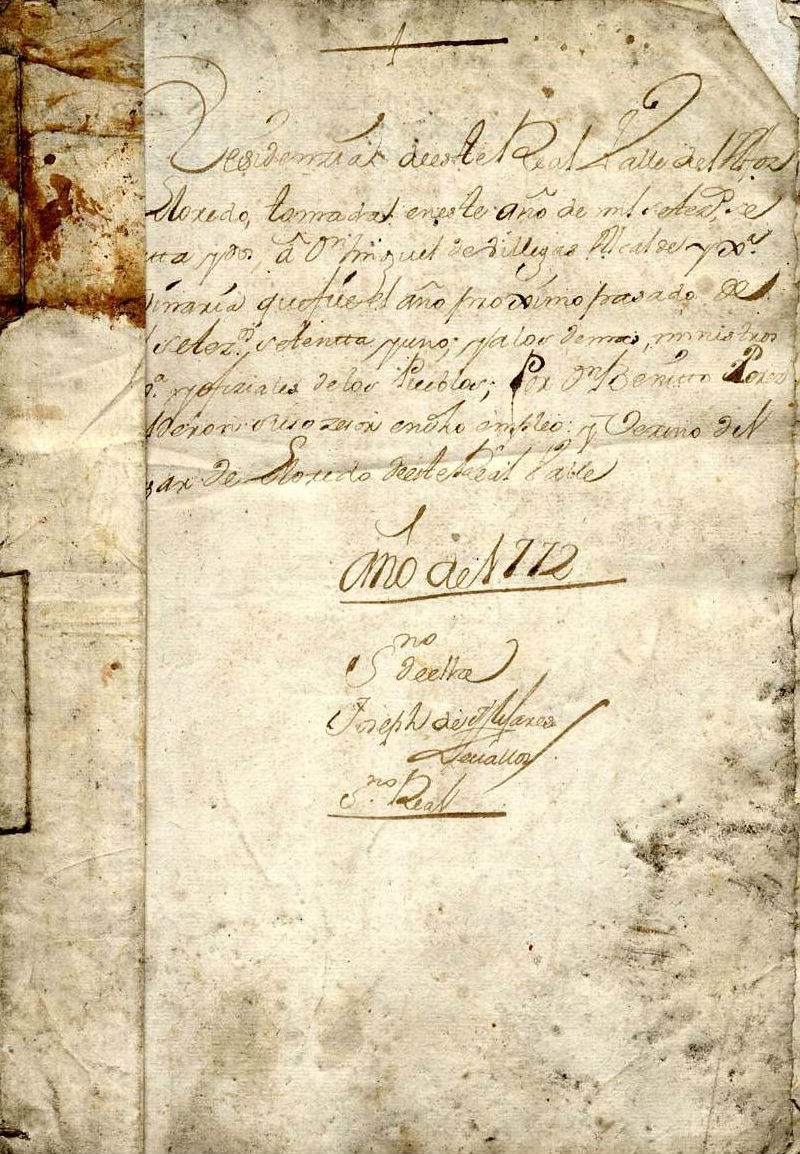 Residenzia deeste Real Valle del Alfoz
Lloredo, tomada eneste año de mil setez.s se
tta y dos, â D.n Miguel de Villegas Alcalde y
dinaria quefue el año proximo pasado de
setez.s setentta y uno; y alos demas, ministros
y ofiziales delos Pueblos; Por D.n Benitto Perez
en dho empleo: y Vezino del
gar de Lloredo deeste Real Valle
año de 1772
S.no
deella
Joseph de
Zevallos
S.no Real